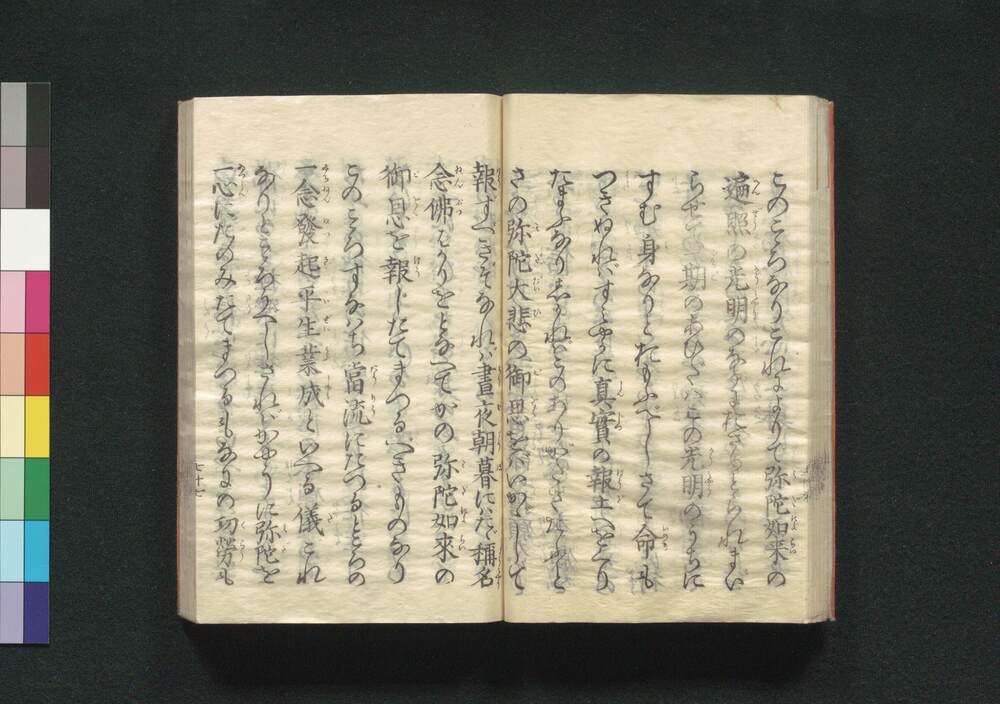 このこゝろなりこれによりて弥陀如来の
遍照の光明のなかにおさめとられまいら
らせて一期のあひだハこの光明のうちに
すむ身なりとおもふべしさて命も
つきぬれバすみやかに真實の報土へをくり
たまふなりしかれバこのありがたさたふと
さの弥陀大悲の御恩をバいかゞして
報ずべきぞなれバ晝夜朝暮にハたゞ稱名
念佛ばかりをとなへてかの弥陀如來の
御恩を報じたてまつるべきものなり
このこゝろすなハち當流にたつるところの
一念發起平生業成といへる儀これ
なりとこゝろうべしされバかやうに弥陀を
一心にたのみたてまつるもなにの功勞も
七十七